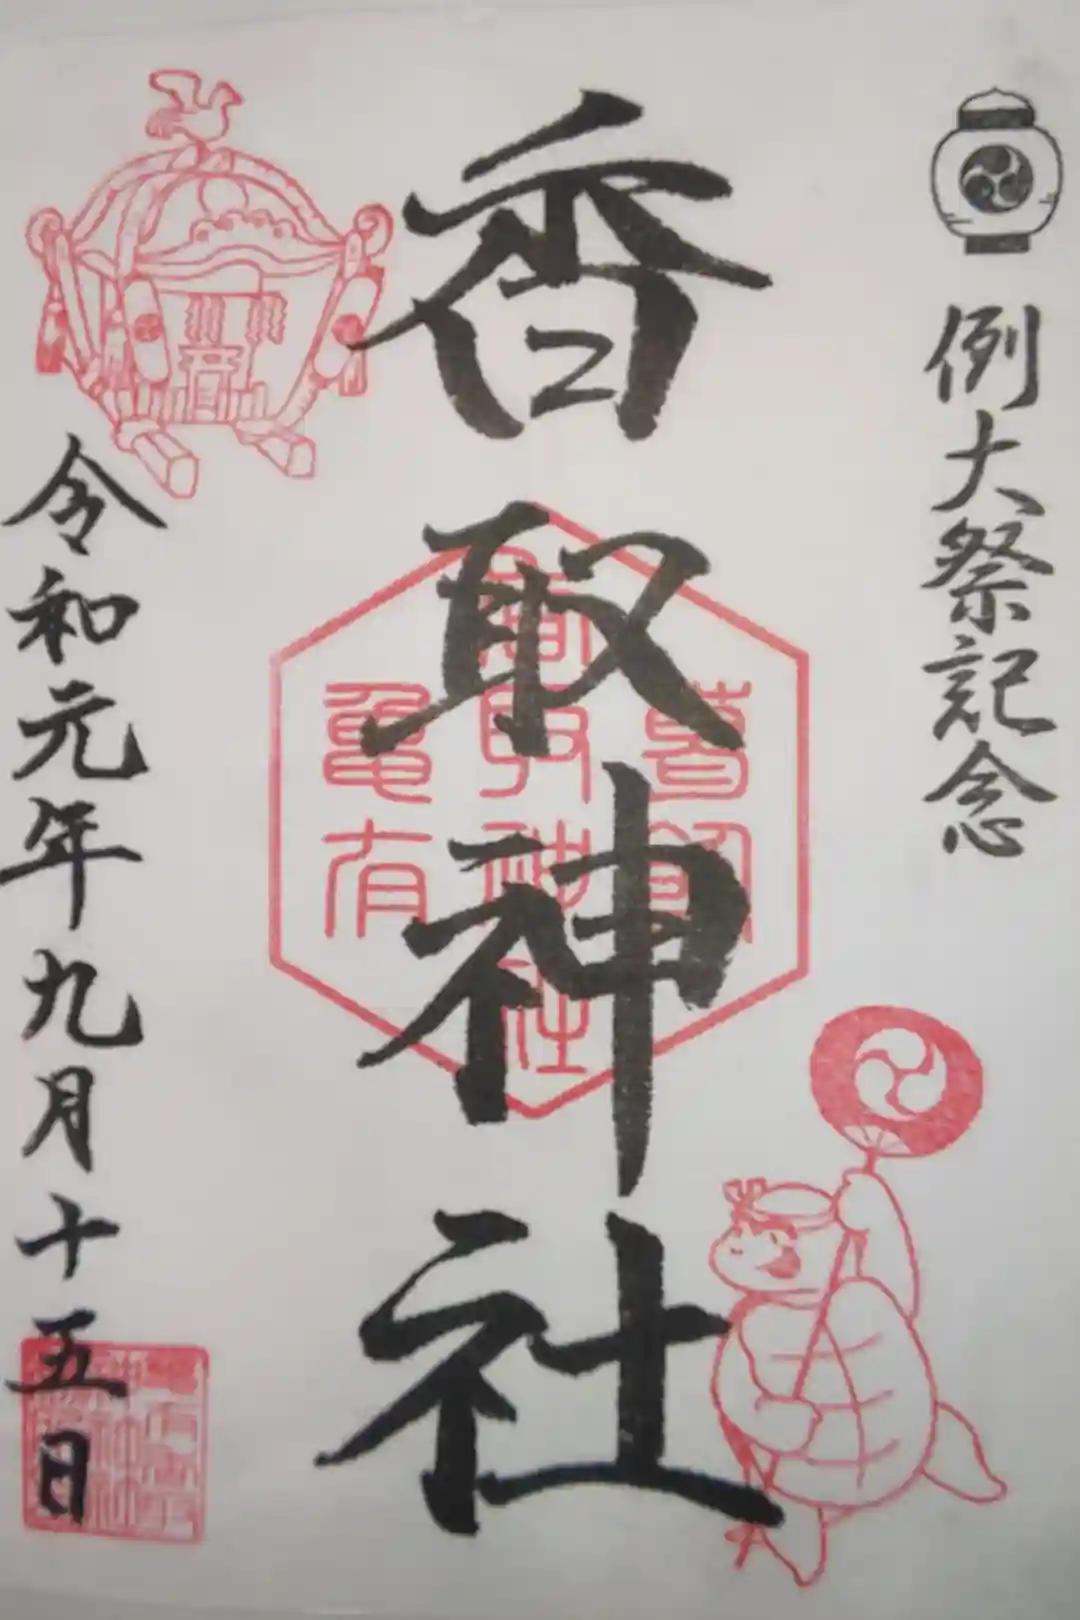 例大祭記念
香取神社
亀有
香取神社
令和元年九月十五日